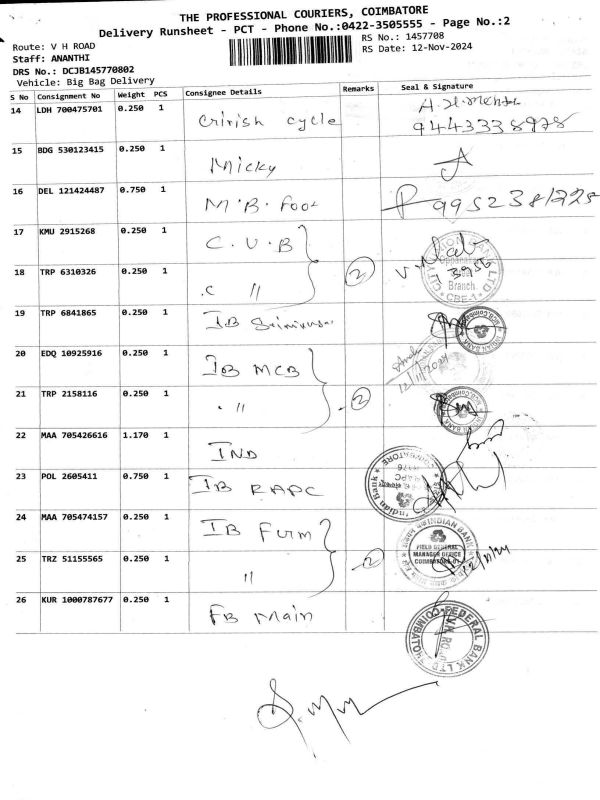 THE PROFESSIONAL COURIERS, COIMBATORE
Delivery Runsheet - PCT - Phone No.:0422-3505555 - Page No.:2
Route: V H ROAD
RS No.: 1457708
Staff: ANANTHI
RS Date: 12-Nov-2024
DRS No.: DCJB145770802
Vehicle: Big Bag Delivery
S No Consignment No Weight PCS Consignee Details Remarks Seal & Signature
14 LDH 700475701 0.250 1 cycle
9443338978
15 BDG 530123415 0.250 1 Micky
16 DEL 121424487 0.750 1 M.B. Foot
17 KMU 2915268 0.250 1 C.V.B
18 TRP 6310326 0.250 1 .c " 2
19 TRP 6841865 0.250 1 IB
20 EDQ 10925916 0.250 1 IB MCB
12/11/2024
21 TRP 2158116 0.250 1 . " 2
22 MAA 705426616 1.170 1 IND
23 POL 2605411 0.750 1 IB RAPC
24 MAA 705474157 0.250 1 IB Furm
FIELD GENERAL
MANAGER OFFICE
25 TRZ 51155565 0.250 1 " 2
26 KUR 1000787677 0.250 1 FB Main
FEDERAL BANK LTD